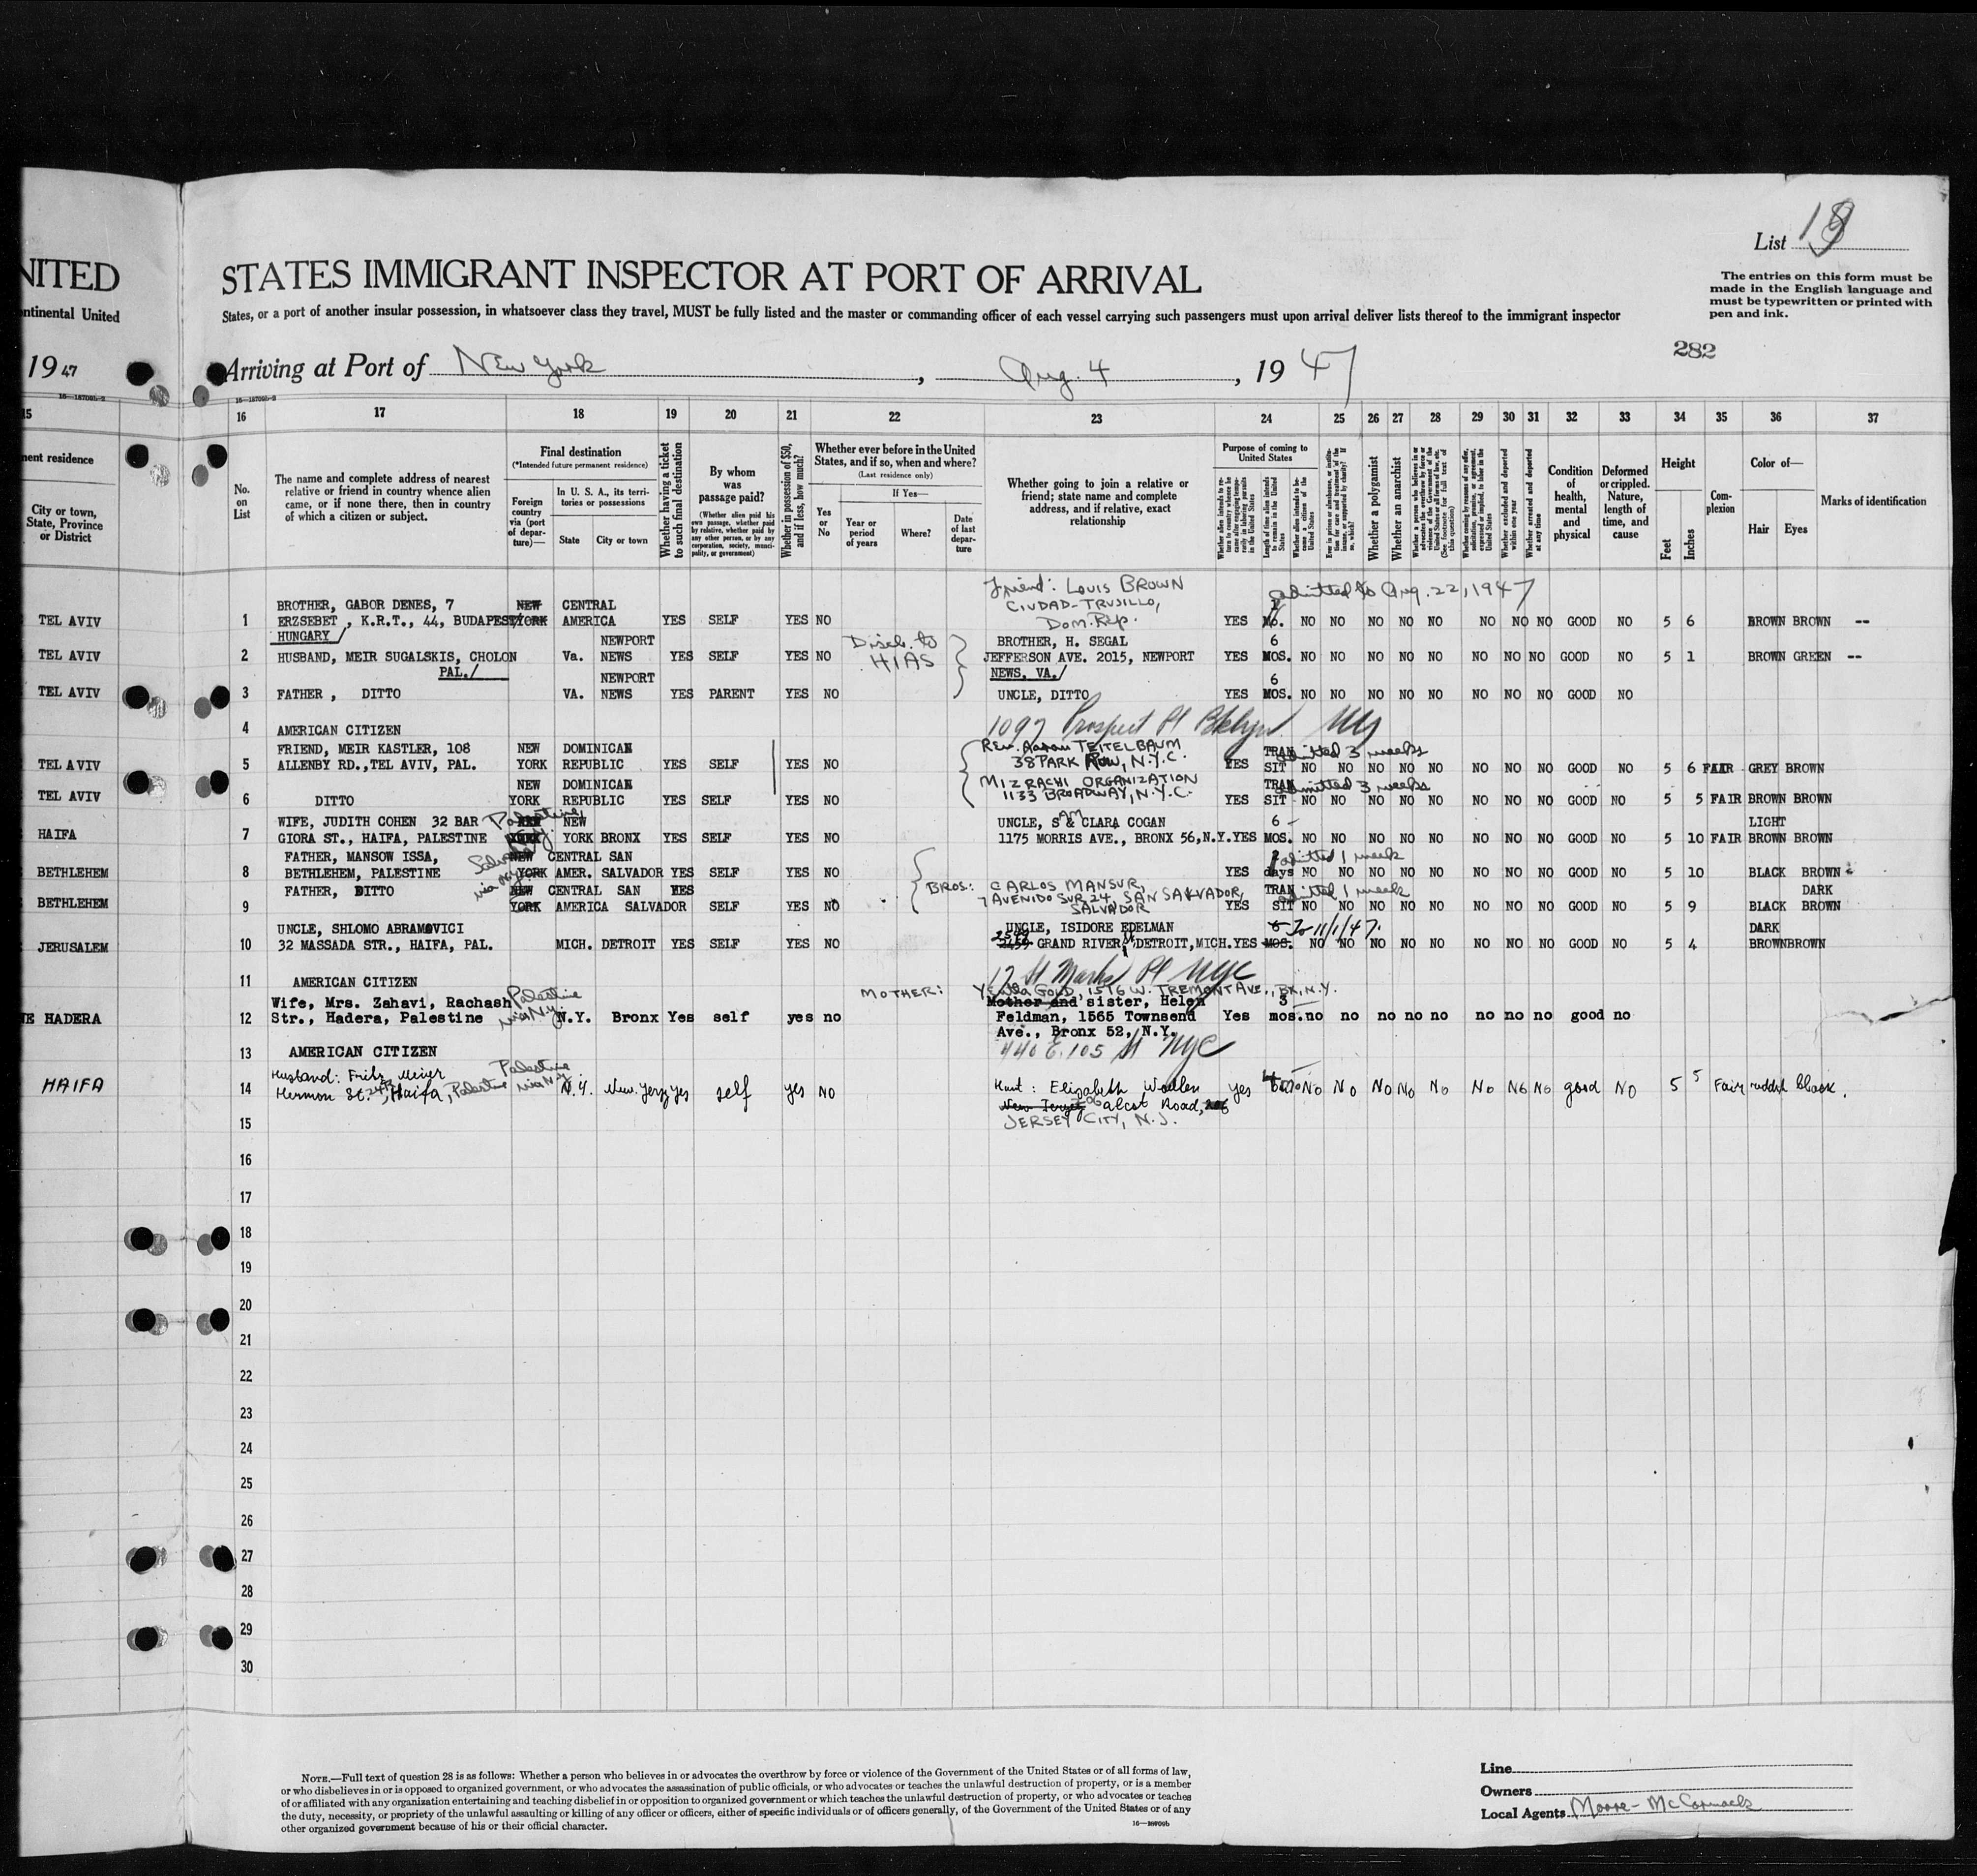 List 18
The entries on this form must be
made in the English language and
must be typewritten or printed with
pen and ink.
NITED
STATES IMMIGRANT INSPECTOR AT PORT OF ARRIVAL
ontinental United
States, or a port of another insular possession, in whatsoever class they travel, MUST be fully listed and the master or commanding officer of each vessel carrying such passengers must upon arrival deliver lists thereof to the immigrant inspector
282
19 47
Arriving at Port of New York, Aug. 4, 19 47
16—18709b-2
16—18709b-2
15 16 17 18 19 20 21 22 23 24 25 26 27 28 29 30 31 32 33 34 35 36 37
nent residence
City or town,
State, Province
or District
No.
on
List
The name and complete address of nearest
relative or friend in country whence alien
came, or if none there, then in country
of which a citizen or subject.
Final destination
(*Intended future permanent residence)
Foreign
country
via (port
of depar-
ture)—
In U. S. A., its terri-
tories or possessions
State City or town
Whether having a ticket
to such final destination
By whom
was
passage paid?
(Whether alien paid his
own passage, whether paid
by relative, whether paid by
any other person, or by any
corporation, society, munici-
pality, or government)
Whether in possession of $50,
and if less, how much?
Whether ever before in the United
States, and if so, when and where?
(Last residence only)
Yes
or
No
If Yes—
Year or
period
of years
Where?
Date
of last
depar-
ture
Whether going to join a relative or
friend; state name and complete
address, and if relative, exact
relationship
Purpose of coming to
United States
Whether alien intends to re-
turn to country whence he
came after engaging tempo-
rarily in laboring pursuits
in the United States
Length of time alien intends
to remain in the United
States
Whether alien intends to be-
come a citizen of the
United States
Whether a polygamist
Whether an anarchist
Whether excluded and deported
within one year
Whether arrested and deported
at any time
Condition
of
health,
mental
and
physical
Deformed
or crippled.
Nature,
length of
time, and
cause
Height
Feet
Inches
Com-
plexion
Color of—
Hair Eyes
Marks of identification
Friend: LOUIS BROWN
admitted to Aug. 22, 1947
BROTHER, GABOR DENES, 7 NEW CENTRAL CIUDAD-TRUJILLO,
TEL AVIV 1 ERZSEBET , K.R.T., 44, BUDAPEST/ YORK AMERICA YES SELF YES NO Dom. Rep. YES Mo. NO NO NO NO NO NO NO NO GOOD NO 5 6 BROWN BROWN --
HUNGARY/ NEWPORT Disch. to BROTHER, H. SEGAL 6
TEL AVIV 2 HUSBAND, MEIR SUGALSKIS, CHOLON Va. NEWS YES SELF YES NO HIAS JEFFERSON AVE. 2015, NEWPORT YES MOS. NO NO NO NO NO NO NO NO GOOD NO 5 1 BROWN GREEN --
PAL./ NEWPORT NEWS, VA./ 6
TEL AVIV 3 FATHER , DITTO VA. NEWS YES PARENT YES NO UNCLE, DITTO YES MOS. NO NO NO NO NO NO NO NO GOOD NO
4 AMERICAN CITIZEN 1097 Prospect Pl Bklyn NY
FRIEND, MEIR KASTLER, 108 NEW DOMINICAN Rev. Aaron TEITELBAUM TRAN admitted 3 weeks
TEL AVIV 5 ALLENBY RD.,TEL AVIV, PAL. YORK REPUBLIC YES SELF YES NO 38 PARK ROW, N.Y.C. YES SIT NO NO NO NO NO NO NO NO GOOD NO 5 6 FAIR GREY BROWN
NEW DOMINICAN MIZRACHI ORGANIZATION TRAN admitted 3 weeks
TEL AVIV 6 DITTO YORK REPUBLIC YES SELF YES NO 1133 BROADWAY, N.Y.C. YES SIT NO NO NO NO NO NO NO NO GOOD NO 5 5 FAIR BROWN BROWN
WIFE, JUDITH COHEN 32 BAR Palestine NEW NEW UNCLE, SAM & CLARA COGAN 6 LIGHT
HAIFA 7 GIORA ST., HAIFA, PALESTINE YORK YORK BRONX YES SELF YES NO 1175 MORRIS AVE., BRONX 56,N.Y. YES MOS. NO NO NO NO NO NO NO NO GOOD NO 5 10 FAIR BROWN BROWN
FATHER, MANSOW ISSA, Salvador NEW CENTRAL SAN admitted 1 week
BETHLEHEM 8 BETHLEHEM, PALESTINE via NY YORK AMER. SALVADOR YES SELF YES NO YES days NO NO NO NO NO NO NO NO GOOD NO 5 10 BLACK BROWN
FATHER, DITTO NEW CENTRAL SAN YES BROS: CARLOS MANSUR, TRAN admitted 1 week DARK
BETHLEHEM 9 YORK AMERICA SALVADOR SELF YES NO 7 AVENIDO SUR 24, SAN SALVADOR, YES SIT NO NO NO NO NO NO NO NO GOOD NO 5 9 BLACK BROWN
SALVADOR
UNCLE, SHLOMO ABRAMOVICI UNCLE, ISIDORE EDELMAN 6 To 11/1/47. DARK
JERUSALEM 10 32 MASSADA STR., HAIFA, PAL. MICH. DETROIT YES SELF YES NO GRAND RIVER, DETROIT, MICH. YES MOS. NO NO NO NO NO NO NO NO GOOD NO 5 4 BROWN BROWN
11 AMERICAN CITIZEN 17 St Marks Pl NYC
MOTHER: Yetta GOLD, 1576 W. TREMONT AVE., BX, N.Y.
Wife, Mrs. Zahavi, Rachash Palestine Mother and sister, Helen 3
HADERA 12 Str., Hadera, Palestine via N.Y. N.Y. Bronx Yes self yes no Feldman, 1565 Townsend Yes mos. no no no no no no no no good no
Ave., Bronx 52, N.Y.
13 AMERICAN CITIZEN 440 E. 105 St NYC
Husband: Fritz Meier Palestine
HAIFA 14 Hermon St. 24, Haifa, Palestine via N.Y. N.Y. New Jersy yes self yes NO Aunt: Elizabeth yes No No No No No No No No good NO 5 5 Fair reddish black.
Road,
15 JERSEY CITY, N.J.
16
17
18
19
20
21
22
23
24
25
26
27
28
29
30
NOTE.—Full text of question 28 is as follows: Whether a person who believes in or advocates the overthrow by force or violence of the Government of the United States or of all forms of law,
or who disbelieves in or is opposed to organized government, or who advocates the assassination of public officials, or who advocates or teaches the unlawful destruction of property, or is a member
of or affiliated with any organization entertaining and teaching disbelief in or opposition to organized government or which teaches the unlawful destruction of property, or who advocates or teaches
the duty, necessity, or propriety of the unlawful assaulting or killing of any officer or officers, either of specific individuals or of officers generally, of the Government of the United States or of any
other organized government because of his or their official character.
16—18709b
Line
Owners
Local Agents Moore-McCormack